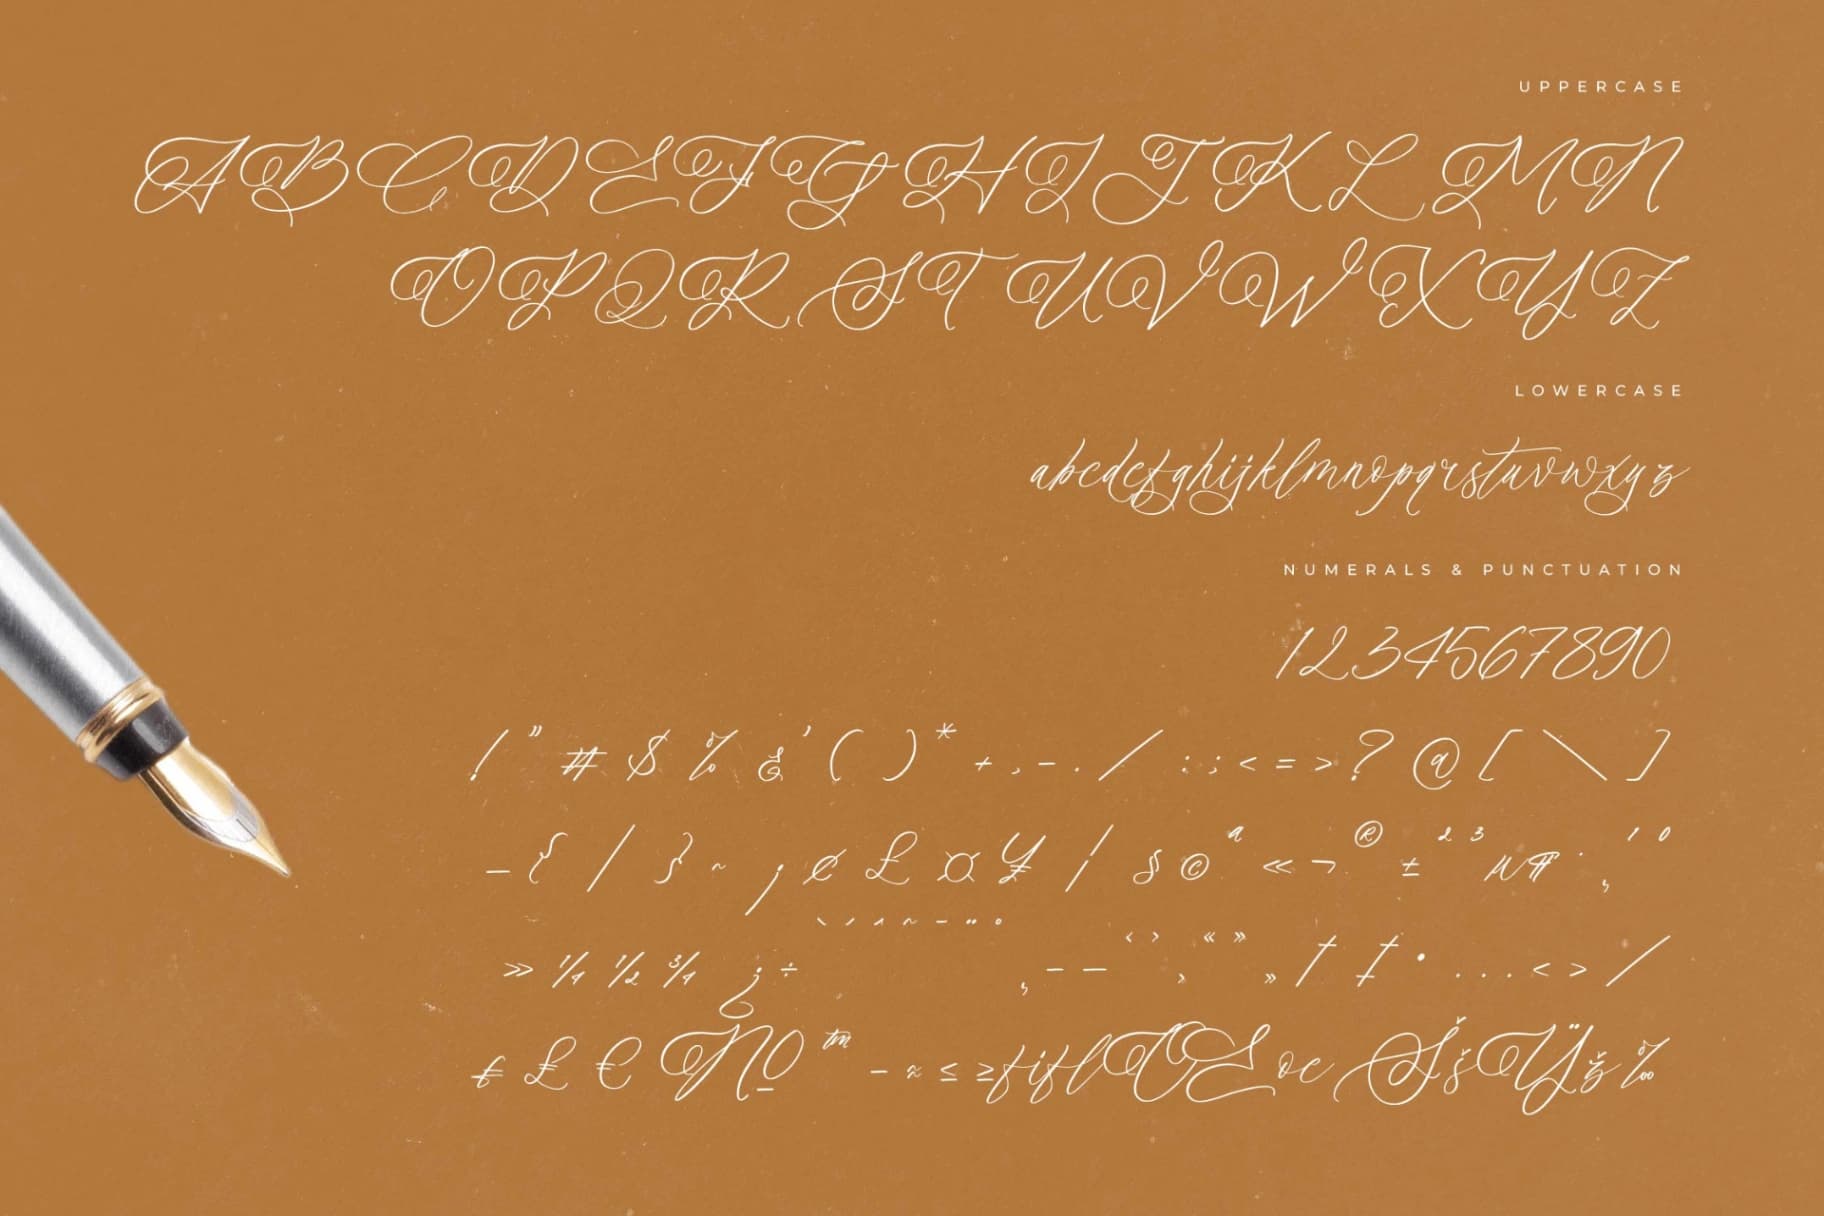 UPPERCASE
ABCDEFGHIJKLMN
OPQRSTUVWXYZ
LOWERCASE
abcdefghijklmnopqrstuvwxyz
NUMERALS & PUNCTUATION
1234567890
! " # $ % & ' ( ) * + , - . / : ; < = > ? @ [ \ ]
_ { | } ~ ¡ ¢ £ ¤ ¥ ¦ § © ª « ¬ ® ± ² ³ µ ¶ · ¸ ¹ º
` ´ ˆ ˜ ¯ ¨ ˚
» ¼ ½ ¾ ¿ ÷ ‚ – — ‹ › “ ” „ † ‡ • … < > ⁄
₤ € № ™ − ≈ ≤ ≥ fi fl Œ œ Š š Ÿ ž ‰